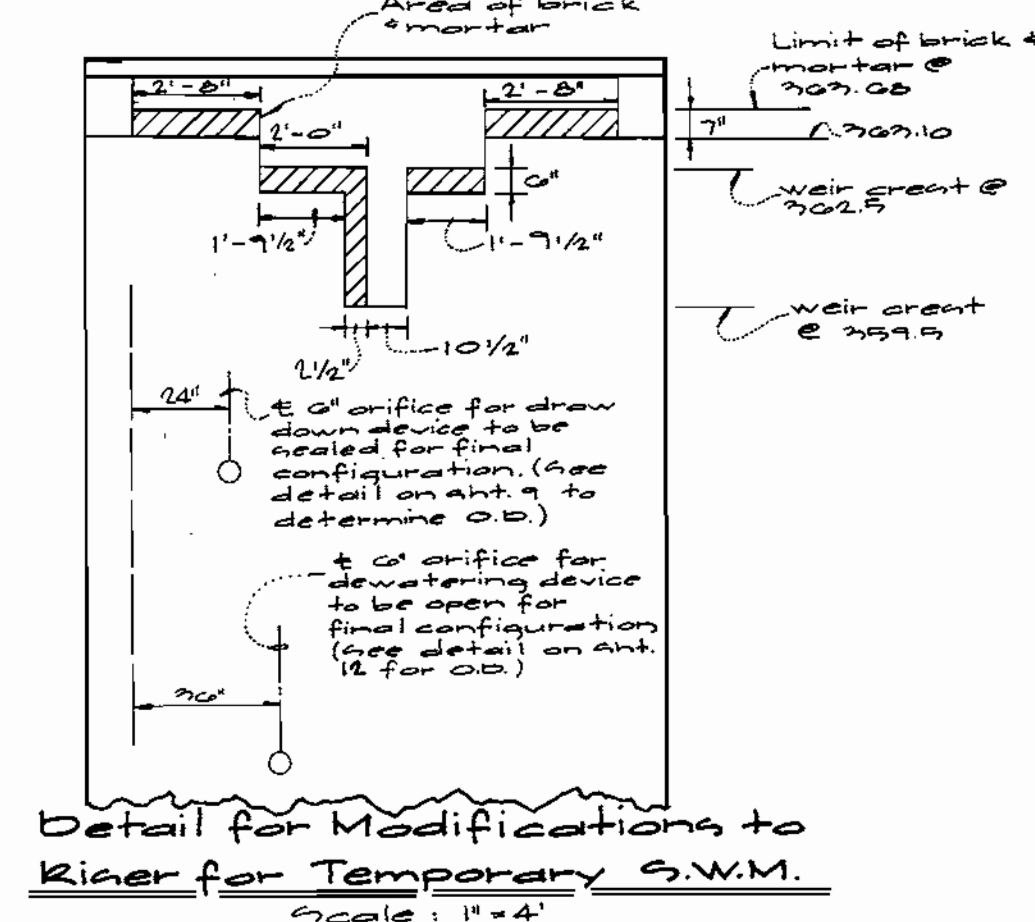 Area of brick
& mortar
Limit of brick &
mortar @
363.68
2'-8"
2'-8"
7"
363.10
2'-0"
6"
weir crest @
362.5
1'-9 1/2"
1'-9 1/2"
weir crest
@ 359.5
10 1/2"
2 1/2"
24"
℄ 6" orifice for draw
down device to be
sealed for final
configuration. (see
detail on sht. 9 to
determine O.D.)
℄ 6" orifice for
dewatering device
to be open for
final configuration
(see detail on sht.
12 for O.D.)
36"
Detail for Modifications to
Riser for Temporary S.W.M.
Scale : 1" = 4'